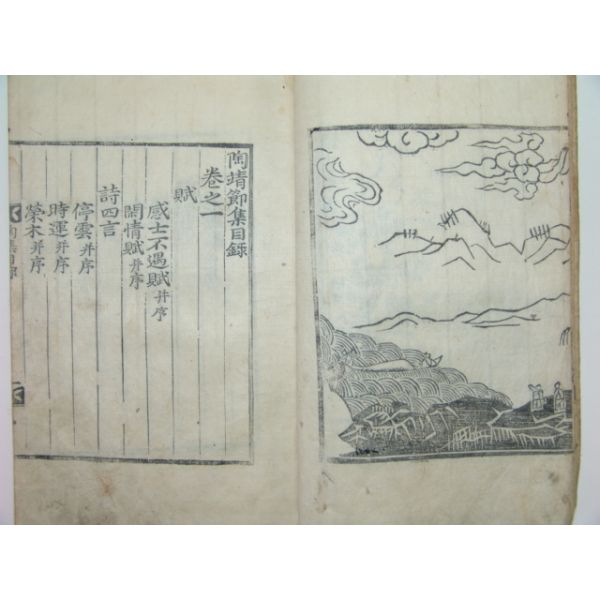 陶靖節集目録
卷之一
賦
感士不遇賦并序
閑情賦并序
詩四言
停雲并序
時運并序
榮木并序